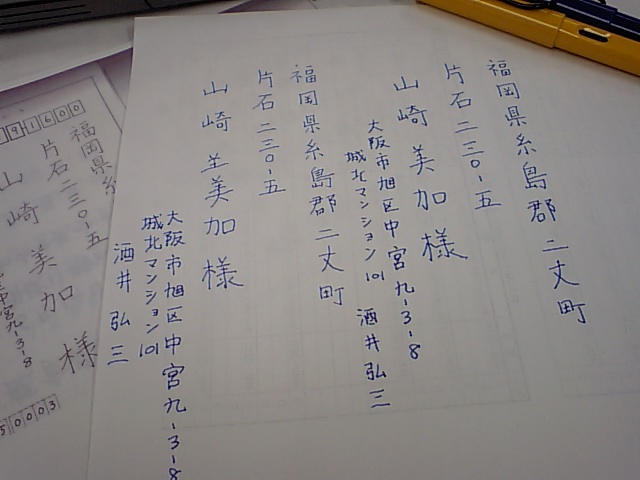 福岡県糸島郡二丈町
片石二三〇-五
山崎美加様
大阪市旭区中宮九-3-8
城北マンション101 酒井弘三
福岡県糸島郡二丈町
片石二三〇-五
山崎美加様
大阪市旭区中宮九-3-8
城北マンション101
酒井弘三
91600
福岡県糸
片石二三〇-五
山崎美加様
中宮九-3-8
50003